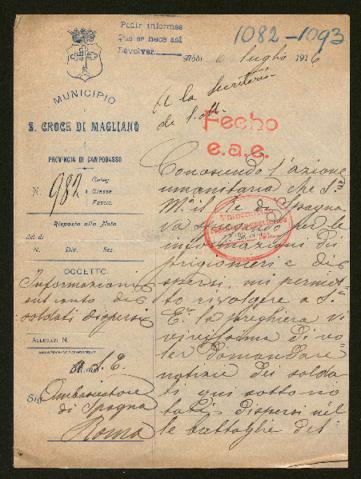 Pedir informes
Que se haga así
Devolver
1082-1093
Luglio 1916
MUNICIPIO
S. CROCE DI MAGLIANO
PROVINCIA DI CAMPOBASSO
N. 982
Categ.
Classe
Fascic.
Risposta alla Nota
N. Div. Sez.
OGGETTO
Informazioni
sul conto dei
soldati dispersi
ALLEGATI N.
A S. E.
Sig. Ambasciatore
di Spagna
Roma
Fecho
e.a.e.
Conoscendo l'azione
umanitaria che S.
M. il Re di Spagna
va per le
informazioni dei
prigionieri e di-
spersi, mi permet-
to rivolgere a S.
E. la preghiera vi
vissima di vo-
ler domandare
notizie dei solda-
ti qui sottono
tati dispersi nel
le battaglie det